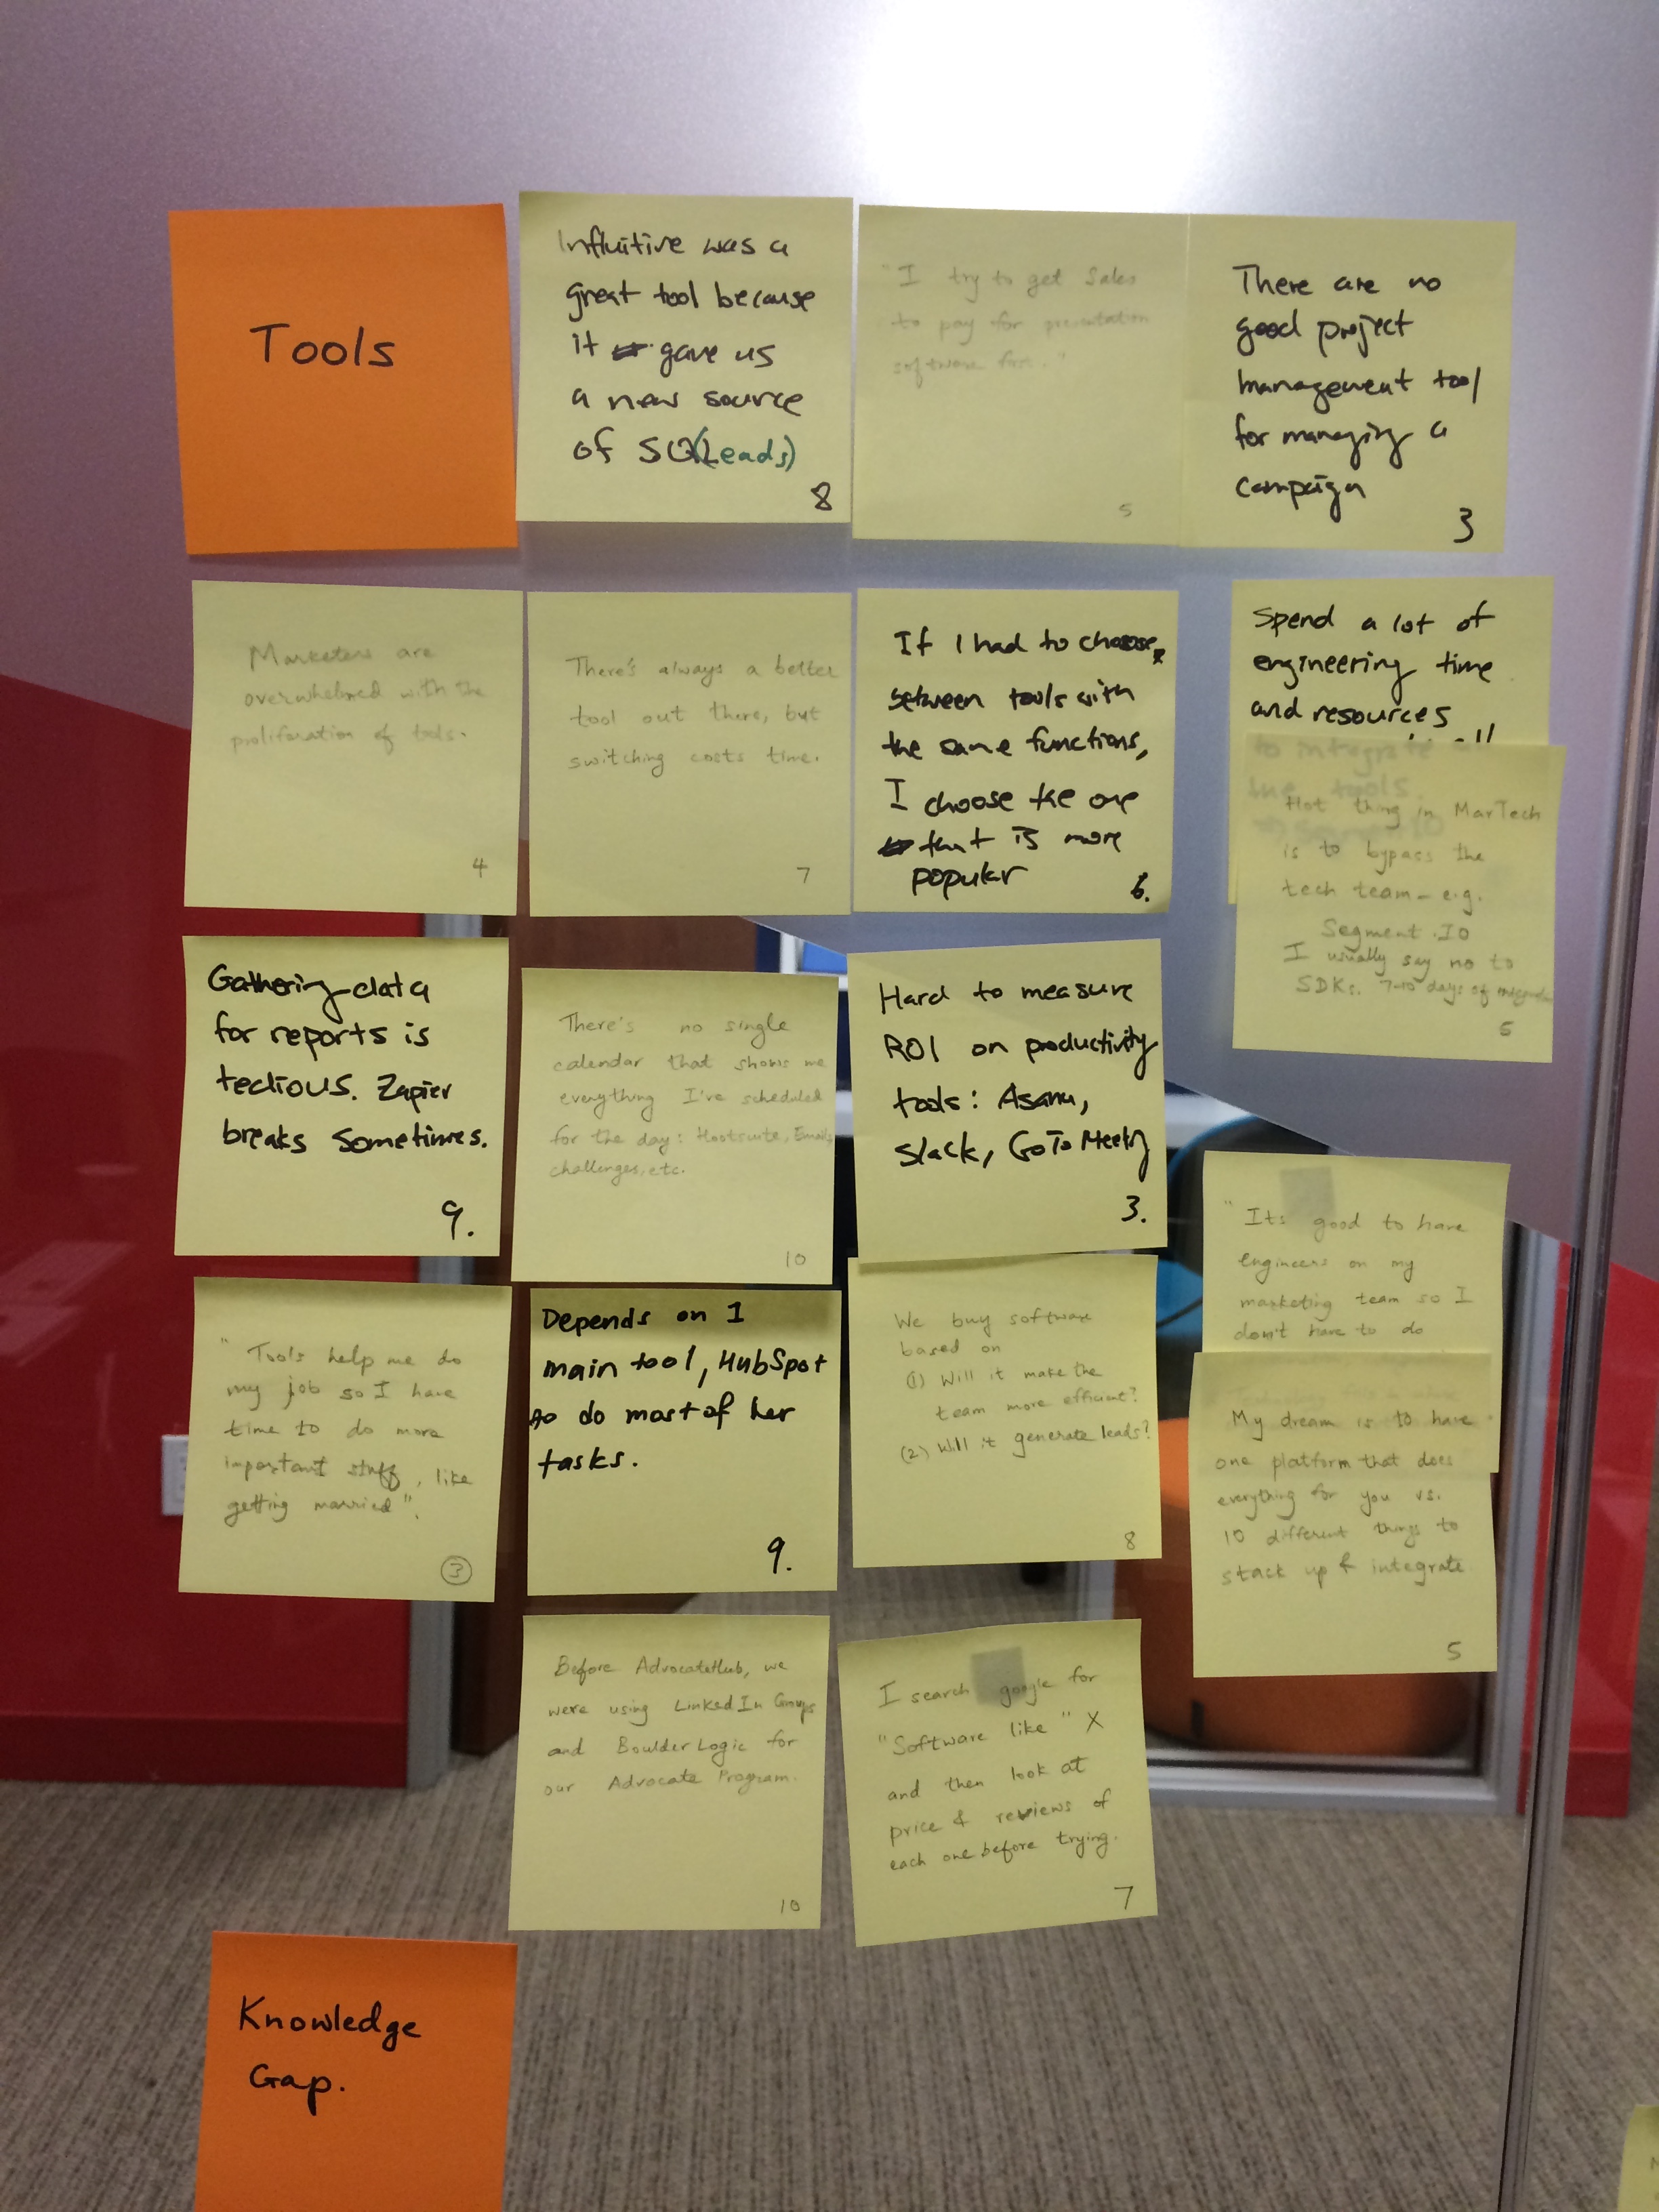 Tools
Influitive was a
great tool because
it gave us
a new source
of SQL(Leads)
8
"I try to get Sales
to pay for presentation
software first."
5
There are no
good project
management tool
for managing a
campaign
3
Marketers are
overwhelmed with the
proliferation of tools.
4
There's always a better
tool out there, but
switching costs time.
7
If I had to choose
between tools with
the same functions,
I choose the one
that is more
popular
6.
Spend a lot of
engineering time
and resources
to integrate all
the tools.
Hot thing in MarTech
is to bypass the
tech team - e.g.
Segment.IO
I usually say no to
SDKs. 7-10 days of
5
Gathering data
for reports is
tedious. Zapier
breaks sometimes.
9.
There's no single
calendar that shows me
everything I've scheduled
for the day: Hootsuite, Email,
challenges, etc.
10
Hard to measure
ROI on productivity
tools: Asana,
Slack, GoTo Meeting
3.
"Its good to have
engineers on my
marketing team so I
don't have to do
"Tools help me do
my job so I have
time to do more
important stuff, like
getting married".
3
Depends on 1
main tool, HubSpot
to do most of her
tasks.
9.
We buy software
based on
(1) Will it make the
team more efficient?
(2) Will it generate leads?
8
My dream is to have
one platform that does
everything for you vs.
10 different things to
stack up & integrate
5
Before AdvocateHub, we
were using LinkedIn Groups
and BoulderLogic for
our Advocate Program.
10
I search google for
"Software like" X
and then look at
price & reviews of
each one before trying.
7
Knowledge
Gap.